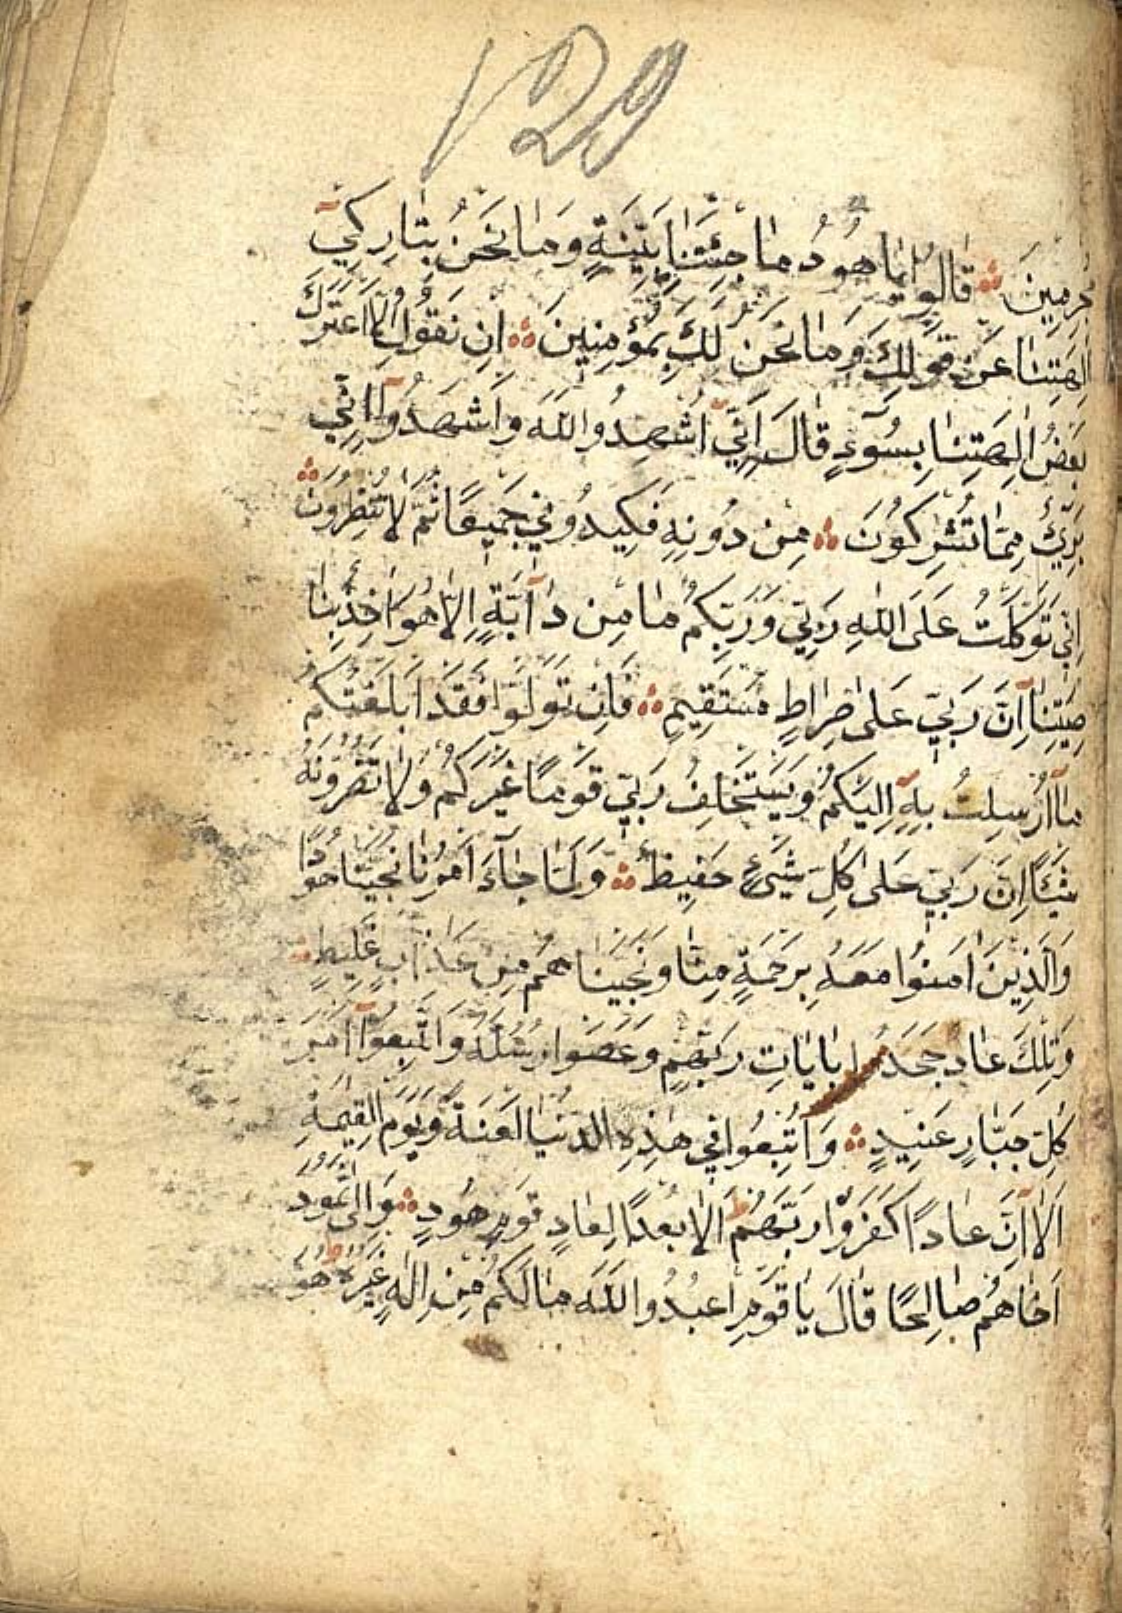 129
مجرمين قَالُوا يَا هُودُ مَا جِئْتَنَا بِبَيِّنَةٍ وَمَا نَحْنُ بِتَارِكِي
اٰلِهَتِنَا عَنْ قَوْلِكَ وَمَا نَحْنُ لَكَ بِمُؤْمِنِينَ اِنْ نَقُولُ اِلَّا اعْتَرٰيكَ
بَعْضُ اٰلِهَتِنَا بِسُوٓءٍ قَالَ اِنِّٓي اُشْهِدُوا اللّٰهَ وَاشْهَدُوٓا اَنِّي
بَرِيٓءٌ مِمَّا تُشْرِكُونَ مِنْ دُونِهِ فَكِيدُونِي جَمِيعًا ثُمَّ لَا تُنْظِرُونِ
اِنِّي تَوَكَّلْتُ عَلَى اللّٰهِ رَبِّي وَرَبِّكُمْ مَا مِنْ دَآبَّةٍ اِلَّا هُوَ اٰخِذٌ بِنَا
صِيَتِنَآ اِنَّ رَبِّي عَلٰى صِرَاطٍ مُسْتَقِيمٍ فَاِنْ تَوَلَّوْا فَقَدْ اَبْلَغْتُكُمْ
مَآ اُرْسِلْتُ بِهِٓ اِلَيْكُمْ وَيَسْتَخْلِفُ رَبِّي قَوْمًا غَيْرَكُمْ وَلَا تَضُرُّونَهُ
شَيْئًا اِنَّ رَبِّي عَلٰى كُلِّ شَيْءٍ حَفِيظٌ وَلَمَّا جَآءَ اَمْرُنَا نَجَّيْنَا هُودًا
وَالَّذِينَ اٰمَنُوا مَعَهُ بِرَحْمَةٍ مِنَّا وَنَجَّيْنَاهُمْ مِنْ عَذَابٍ غَلِيظٍ
وَتِلْكَ عَادٌ جَحَدُوا بِاٰيَاتِ رَبِّهِمْ وَعَصَوْا رُسُلَهُ وَاتَّبَعُوٓا اَمْرَ
كُلِّ جَبَّارٍ عَنِيدٍ وَاُتْبِعُوا فِي هٰذِهِ الدُّنْيَا لَعْنَةً وَيَوْمَ الْقِيٰمَةِ
اَلَآ اِنَّ عَادًا كَفَرُوا رَبَّهُمْ اَلَا بُعْدًا لِعَادٍ قَوْمِ هُودٍ وَاِلٰى ثَمُودَ
اَخَاهُمْ صَالِحًا قَالَ يَا قَوْمِ اعْبُدُوا اللّٰهَ مَا لَكُمْ مِنْ اِلٰهٍ غَيْرُهُ هُوَ